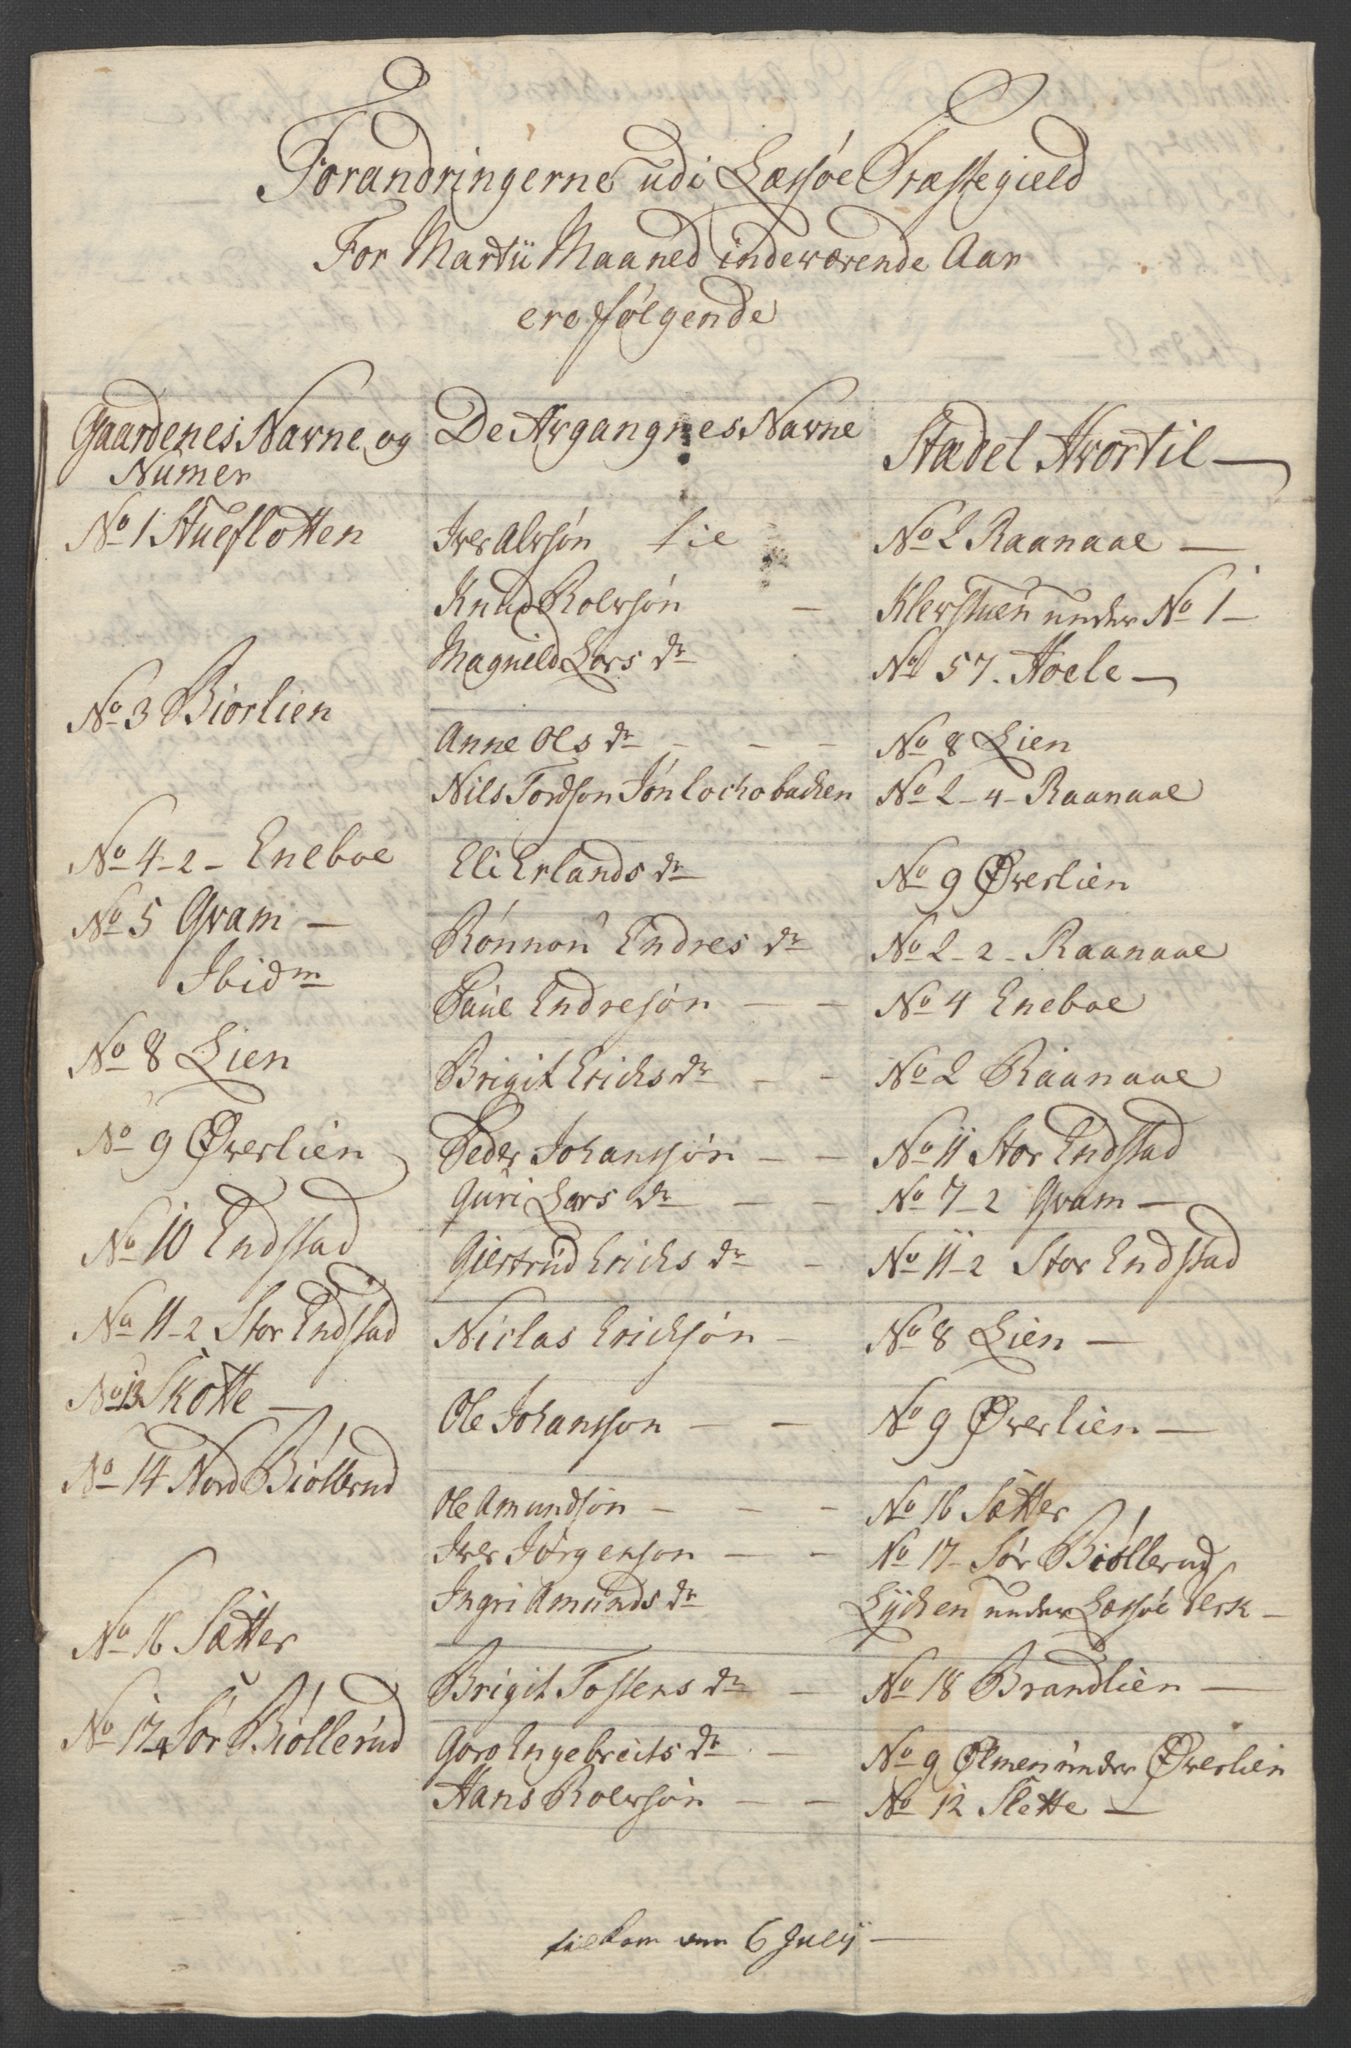 Forandringerne udi Læssøe Præstegield
For Martii Maaned indeværende Aar
ere følgende
Gaardenes Navne og Numer | De Avgangnes Navne | Stædet Hvortil —
No 1 Stueflotten | Iver Alvsøn til | No 2 Raanaae —
Knud Rolvsøn — | Klevstuen under No 1 —
Magnild Lars dr | No 57. Hoele —
No 3 Biorlien
Anne Ols dr - - - | No 8 Lien
Nils Tordson | No 2-4- Raanaae
No 4-2- Eneboe | Eli Erlands dr | No 9 Øverlien
No 5 Qvam — | Rønnon Endres dr | No 2-2- Raanaae
Ibidm | Paul Endresøn — — | No 4 Eneboe
No 8 Lien | Brigit Erichs dr - - | No 2 Raanaae
No 9 Øverlien | Peder Johanssøn — — | No 11 Stor Endstad
Guri Lars dr - - | No 7-2 Qvam —
No 10 Endstad | Giertrud Erichs dr - - | No 11-2 Stor Endstad
No 11-2 Stor Endstad | Niclas Erichsøn - | No 8 Lien —
No 13 Skotte — | Ole Johansson — — | No 9 Øverlien —
No 14 Nord Biøllerud
Ole Amundsøn - - - | No 16 Sætter
Iver Jørgenson — - | No 17- Sør Biøllerud
Ingri Amunds dr | Lychen under Læssøe Verk —
No 16 Sætter | Brigit Tostens dr — | No 18 Brandlien —
No 17-4 Sør Biøllerud | Goro Engebreits dr - - | No 9 Ølmen under Øverlien
Hans Rolvsøn — — | No 12 Slette —
tilkom den 6 July —